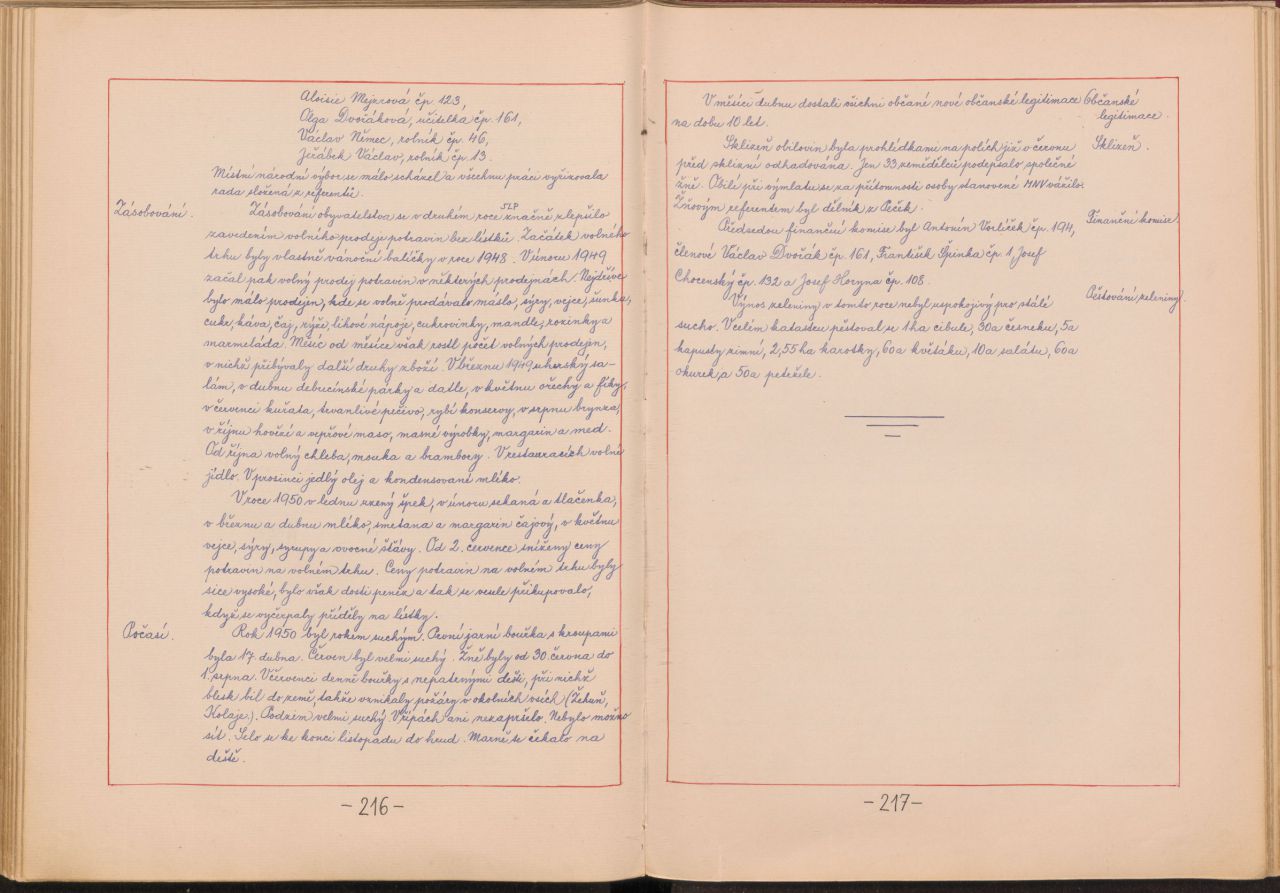 Aloisie Mejzrová čp. 123,
Olga Dvořáková, učitelka čp. 161,
Václav Němec, rolník čp. 46,
Jeřábek Václav, rolník čp. 13.
Místní národní výbor se málo scházel a všechnu práci vyřizovala
rada složená z referentů.
Zásobování.
Zásobování obyvatelstva se v druhém roce 5LP značně zlepšilo
zavedením volného prodeje potravin bez lístků. Začátek volného
trhu byly vlastně vánoční balíčky v roce 1948. V únoru 1949
začal pak volný prodej potravin v některých prodejnách. Nejdříve
bylo málo prodejen, kde se volně prodávalo máslo, sýry, vejce, šunka,
cukr, káva, čaj, rýže, lihové nápoje, cukrovinky, mandle, rozinky a
marmeláda. Měsíc od měsíce však rostl počet volných prodejen,
v nichž přibývaly další druhy zboží. V březnu 1949 uherský sa-
lám, v dubnu debrecínské párky a datle, v květnu ořechy a fíky,
v červenci kuřata, trvanlivé pečivo, rybí konservy, v srpnu brynza,
v říjnu hovězí a vepřové maso, masné výrobky, margarin a med.
Od října volný chleba, mouka a brambory. V restauracích volné
jídlo. V prosinci jedlý olej a kondensované mléko.
V roce 1950 v lednu uzený špek, v únoru sekaná a tlačenka,
v březnu a dubnu mléko, smetana a margarin čajový, v květnu
vejce, sýry, syrupy a ovocné šťávy. Od 2. července sníženy ceny
potravin na volném trhu. Ceny potravin na volném trhu byly
sice vysoké, bylo však dosti peněz a tak se vesele přikupovalo,
když se vyčerpaly příděly na lístky.
Počasí.
Rok 1950 byl rokem suchým. První jarní bouřka s kroupami
byla 17. dubna. Červen byl velmi suchý. Žně byly od 30. června do
1. srpna. V červenci denně bouřky s nepatrnými dešti, při nichž
blesk bil do země, takže vznikaly požáry v okolních vsích (Žehuň,
Kolaje.). Podzim velmi suchý. V řípách ani nezapršelo. Nebylo možno
sít. Selo se ke konci listopadu do hrud. Marně se čekalo na
deště.
-216-
V měsíci dubnu dostali všichni občané nové občanské legitimace
na dobu 10 let.
Občanské
legitimace.
Sklizeň obilovin byla prohlídkami na polích již v červnu
před sklizní odhadována. Jen 33 zemědělci podepsalo společné
žně. Obilí při výmlatu se za přítomnosti osoby stanovené MNV vážilo.
Žňovým referentem byl dělník z Peček.
Sklizeň.
Předsedou finanční komise byl Antonín Vorlíček čp. 194,
členové Václav Dvořák čp. 161, František Špinka čp. 1, Josef
Chocenský čp. 132 a Josef Horyna čp. 108.
Finanční komise.
Výnos zeleniny v tomto roce nebyl uspokojivý pro stálé
sucho. V celém katastru pěstoval se 1 ha cibule, 30 a česneku, 5 a
kapusty zimní, 2,55 ha karotky, 60 a květáku, 10 a salátu, 60 a
okurek, a 50 a petržele.
Pěstování zeleniny.
-217-